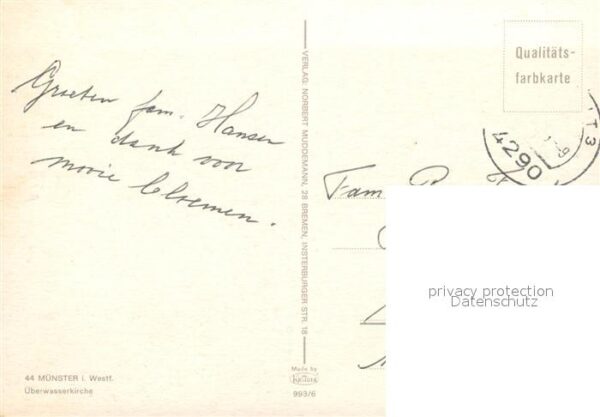 Groeten fam. Hansen
en dank voor
mooie bloemen.
VERLAG NORBERT MUDDEMANN, 28 BREMEN, INSTERBURGER STR. 18
Qualitäts-
farbkarte
4290
Fam
privacy protection
Datenschutz
44 MÜNSTER i. Westf.
Überwasserkirche
Made by
KRÜGER
993/6